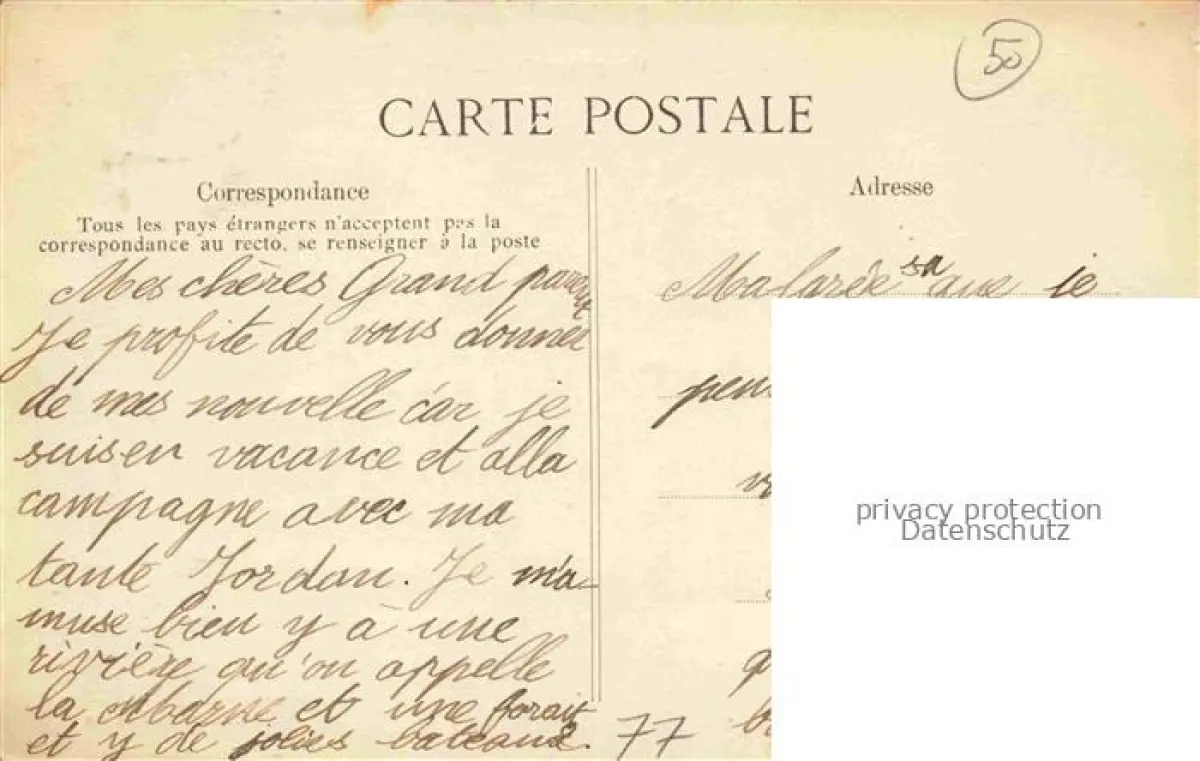 50
CARTE POSTALE
Correspondance
Tous les pays étrangers n'acceptent pas la
correspondance au recto, se renseigner à la poste
Mes chères Grand parent
Je profite de vous donner
de mes nouvelle car je
suis en vacance et alla
campagne avec ma
tante Jordan. Je m'a-
muse bien y à une
rivière qu'on appelle
la Marne et une forait
et y de jolies bateaux.
77
Adresse
sa que je
privacy protection
Datenschutz